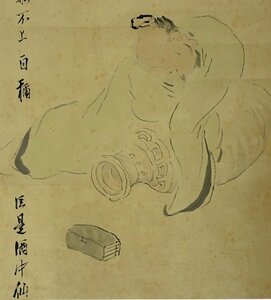 不上
自稱
臣是酒中仙